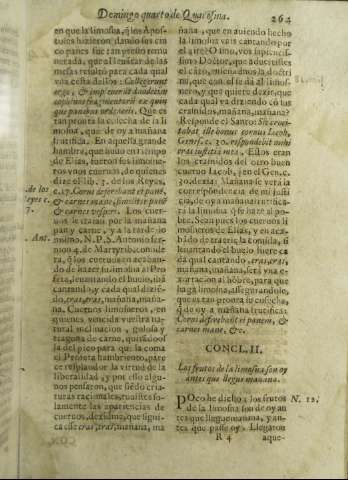 Domingo quarto de Quaresma. 264
en que la limosna, q̃ los Apos-
toles hizieron, dando sus cin
co panes fue tan presto remu
nerada, que al leuãtar de las
mesas resultò para cada qual
vna cesta dellos: Collegerunt
ergo, & impleuerunt duodecim
cophinos fragmentorũ ex quin
que panibus ordeaceis. Que es
tan pronta la cosecha de la li
mosna, que de oy a mañana
frutifica. En aquella grande
hambre, que huuo en tiempo
de Elias, fueron sus limosne-
ros vnos cueruos, de quienes
dize el lib. 3. de los Reyes,
c. 17. Corui deferebant ei panẽ,
& carnes mane, similiter panẽ
& carnes vesperi. Los cuer-
uos le traian por la mañana
pan y carne, y a la tarde lo
mismo. N. P. S. Antonio ser-
mon 4. de Martyrib. conside
ra, q̃ los cueruos en acaban-
do de hazer su limosna al Pro
feta, leuantando el buelo, ibã
cantando, y cada qual dizien-
do, cras, cras, mañana, maña-
na. Cueruos limosneros, en
quienes vencida vuestra na-
tural inclinacion, gulosa y
tragona de carne, quitadose
la del pico para que la coma
el Profeta hambriento, pare
ce resplandor la virtud de la
liberalidad, y por esso algu-
nos pensaron, que siẽdo cria-
turas racionales, tuuistes so-
lamente las apariencias de
cueruos, dezidme, que signi-
ca esse cras, cras, mañana, ma
ñana, que en auiendo hecho
la limosna vais cantando por
el ayre? O sino, vos sapientis-
simo Doctor, que aduertistes
el caso, miendonos la doctri
na, que con esso da al limos-
nero, y que quiere dezir, que
cada qual va diziendo cõ tus
crasinulos, mañana, mañana?
Responde el Santo: Sic creui
tabat ille bonus coruus Iacob,
Genes. c. 30. respondebit mihi
cras iustitia mea. Estos eran
los crasinidos del otro buen
cueruo Iacob, en el Gen. c.
30. dezia: Mañana se verà la
correspondencia de mi justi-
cia, de oy a mañana frutifica-
ra la limosna q̃ se haze al po-
bre. Sean pues los cueruos li
mosneros de Elias, y en aca-
bãdo de traerle la comida, si
leuantando el buelo, fuere ca
da qual cantando, cras, cras,
mañana, mañana, serà vna e-
xortacion al hõbre, para que
haga limosna, assegurandole,
que es tan pronta su cosecha,
q̃ de oy a mañana frutifica:
Corui deferebant ei panem, &
carnes mane, &c.
CONCL. II.
Los frutos de la limosna son oy
antes que llegue mañana.
POco he dicho: los frutos
de la limosna son de oy an
tes que llegue mañana, y an-
tes que passe oy. Llegaron
R 4 aque-
de los
Reyes c.
7.
Ant.
N. 12.